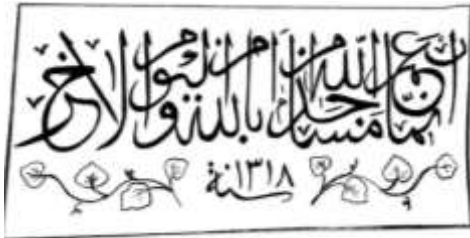 إنما يعمر مساجد الله من آمن بالله واليوم الآخر
سنة ١٣١٨